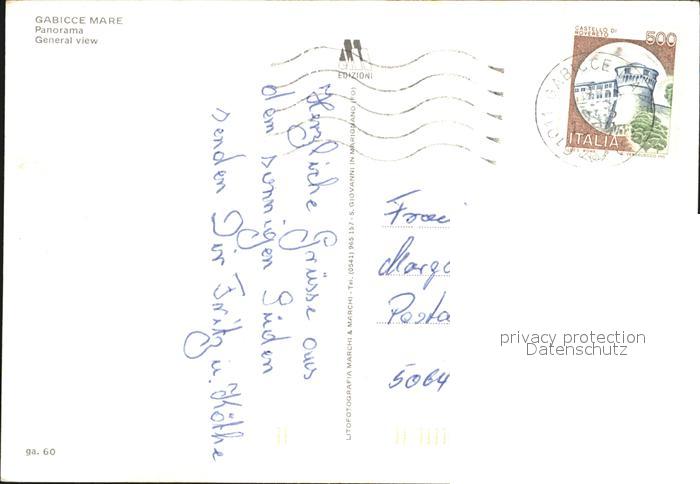 GABICCE MARE
Panorama
General view
EDIZIONI
CASTELLO DI
ROVERETO
500
ITALIA
GABICCE
Herzliche Grüsse aus
dem sonnigen Süden
senden Dir Fritz u. Käthe
LITOFOTOGRAFIA MARCHI & MARCHI - TEL. (0541) 965157 - S. GIOVANNI IN MARIGNANO (FO)
Frau
Marg
Posta
5064
privacy protection
Datenschutz
ga. 60